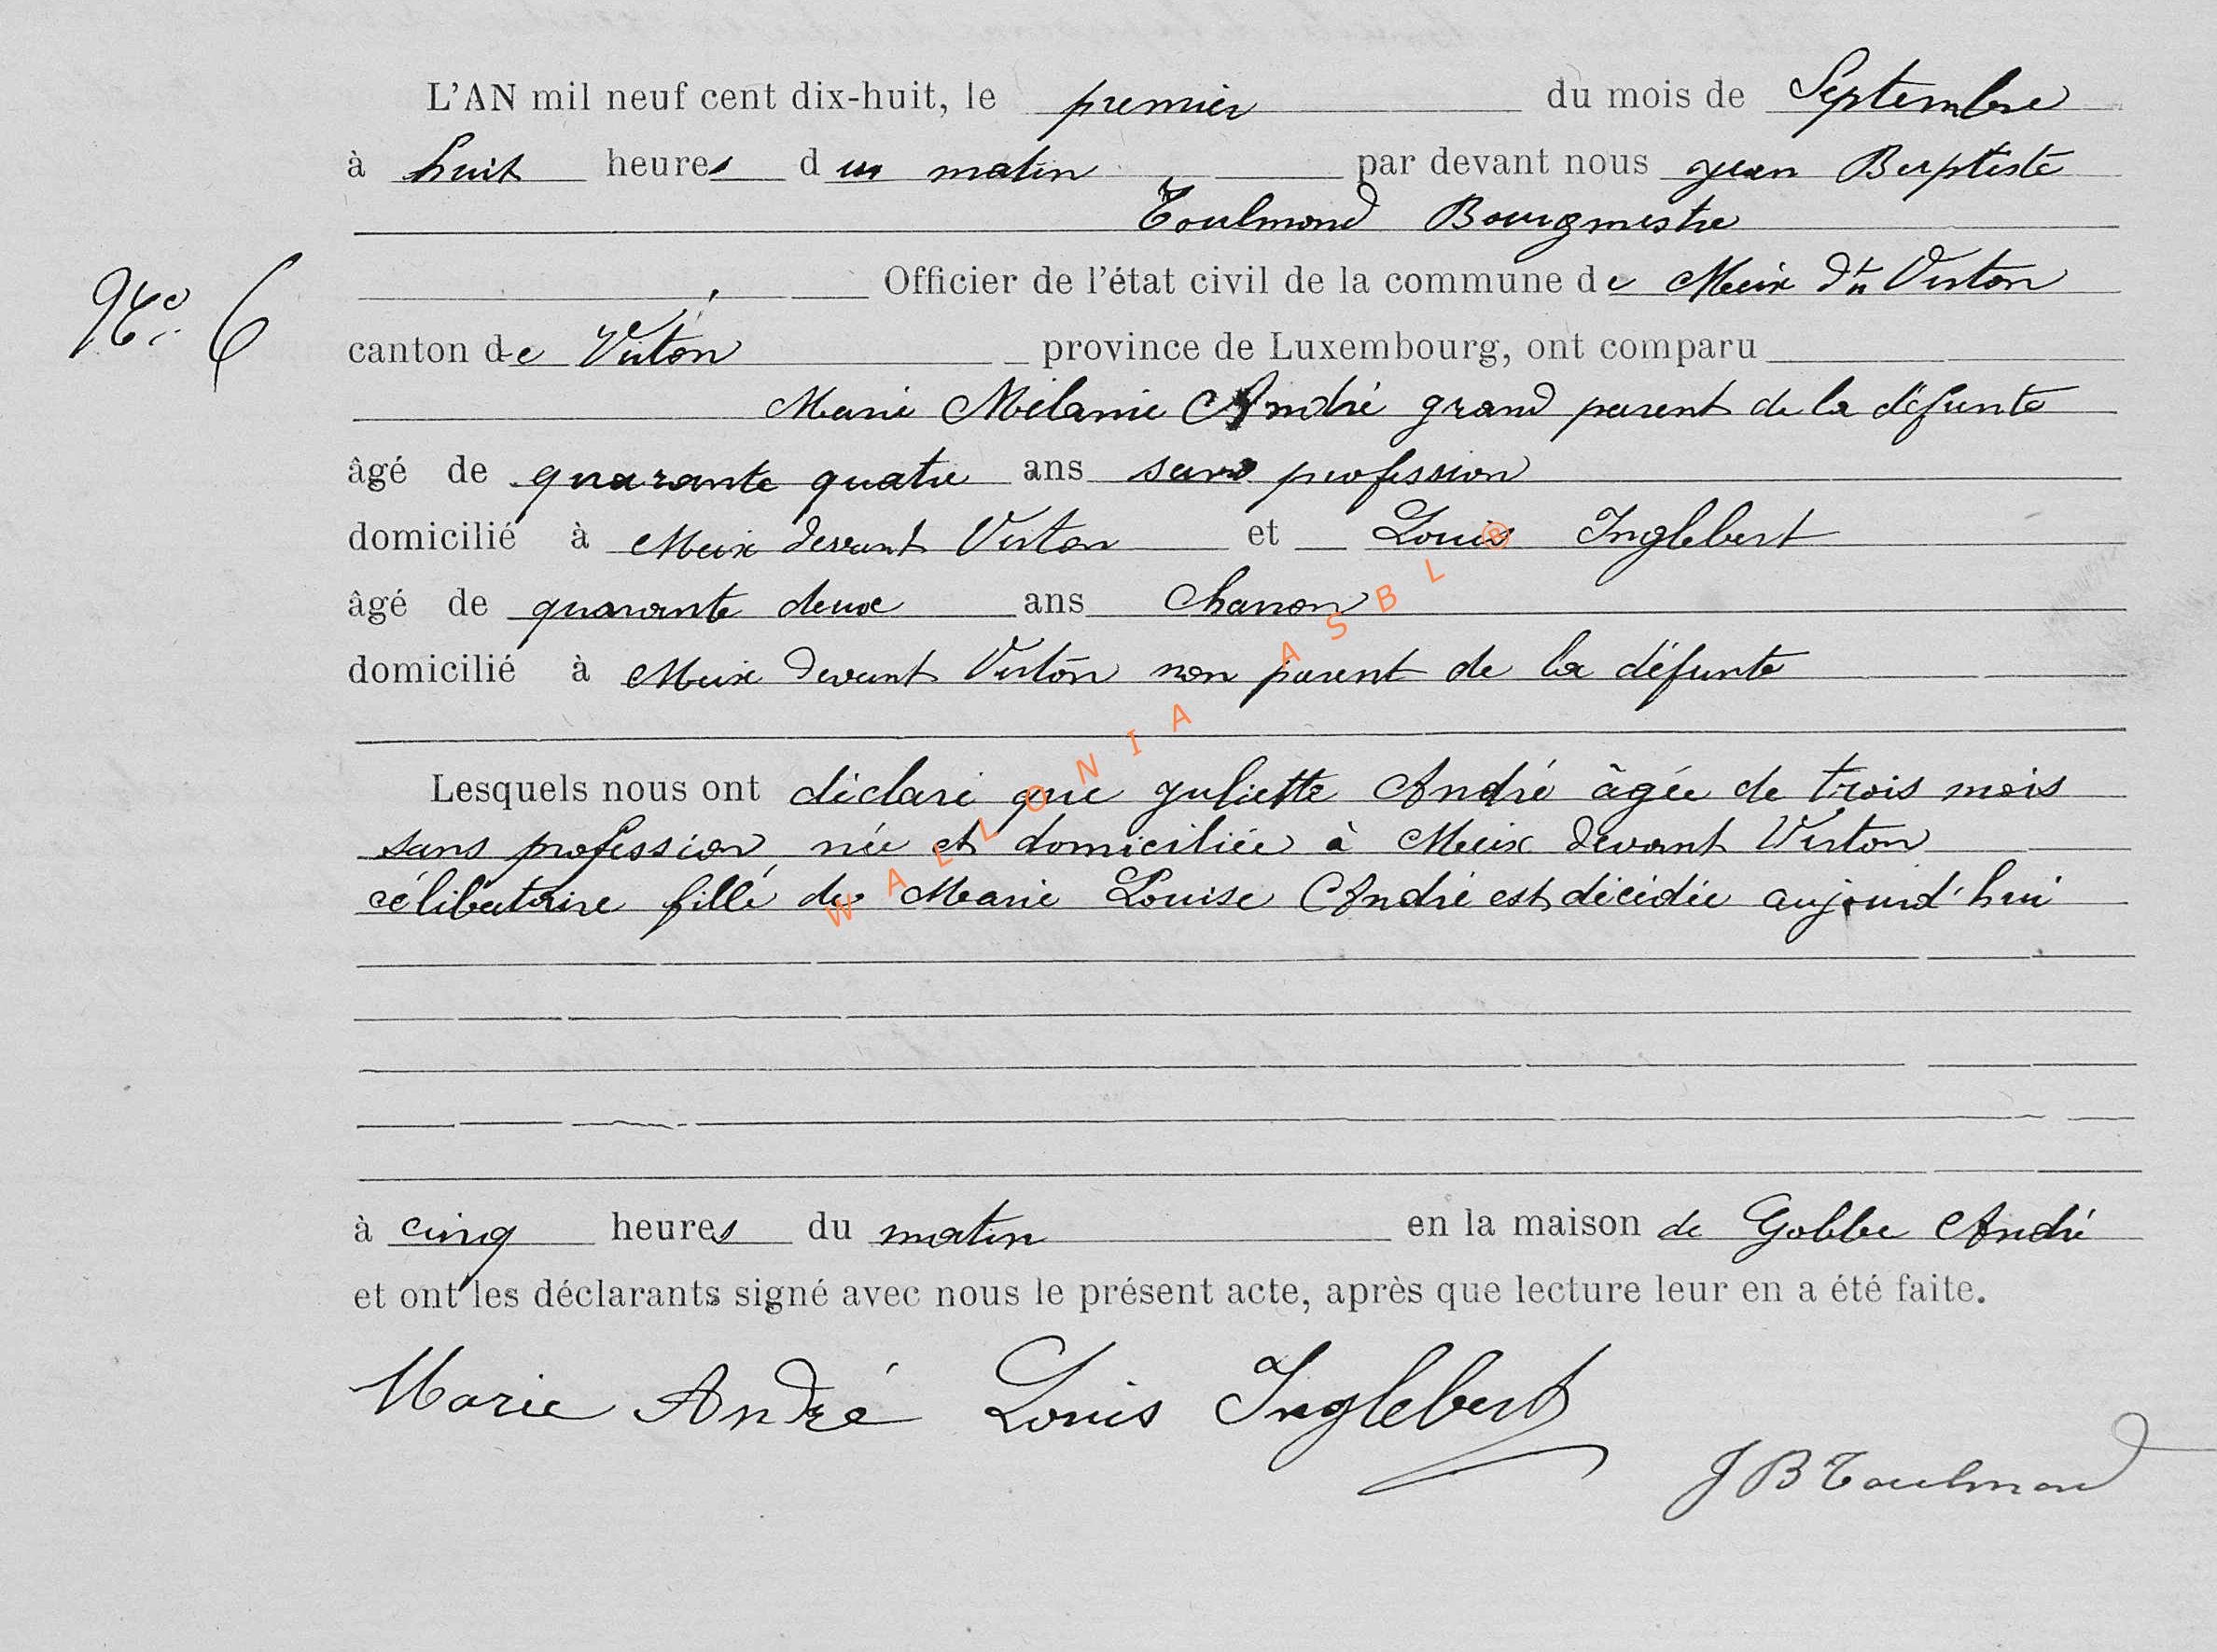 L'AN mil neuf cent dix-huit, le premier du mois de Septembre
à huit heures du matin par devant nous Jean Baptiste
Toulmond Bourgmestre
Officier de l'état civil de la commune de Meix dt Virton
No. 6
canton de Virton province de Luxembourg, ont comparu
Marie Mélanie André grand parent de la défunte
âgé de quarante quatre ans sans profession
domicilié à Meix devant Virton et Louis Inglebert
âgé de quarante deux ans Charron
domicilié à Meix devant Virton non parent de la défunte
Lesquels nous ont déclaré que Juliette André âgée de trois mois
sans profession née et domiciliée à Meix devant Virton
célibataire fille de Marie Louise André est décédée aujourd'hui
à cinq heures du matin en la maison de Gobbe André
et ont les déclarants signé avec nous le présent acte, après que lecture leur en a été faite.
Marie André Louis Inglebert
J B Toulmond
WALLONIA ASBL ®